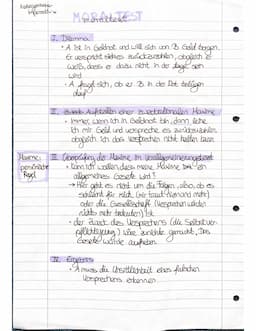 Kategorischer
Imperativ
MORALTEST
I. Dilemma
• A ist in Geldnot und will sich von B Geld borgen.
Er verspricht dieses zurückzuzahlen, obgleich er
weiß, dass er dazu nicht in der Lage sein
wird
• A fragt sich, ob er B in der Not belügen
darf
II. Aufstellen einer Maxime
• Immer, wenn ich in Geldnot bin, dann leihe
ich mir Geld und verspreche es zurückzuzahlen
obgleich ich das Versprechen nicht halten kann
Maxime:
persönliche
Regel
III. Überprüfung der Maxime im Verallgemeinerungstest
• Kann ich wollen dass meine Maxime ein
allgemeines Gesetz wird?
→ Hier geht es nicht um die Folgen, also ob es
schlecht für mich (mir traut niemand mehr)
oder die Gesellschaft (Versprechen würden
nichts mehr bedeuten) ist
• der Zweck des Versprechens (die Selbstver-
pflichtung) wäre zunichte gemacht, das
Gesetz würde aufheben.
IV. Ergebnis
• A muss die Unsittlichkeit eines falschen
Versprechens erkennen